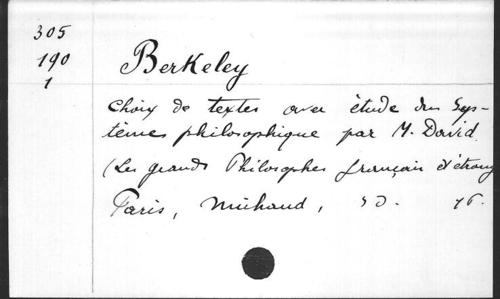 305
190
1
Berkeley
Choix de textes avec étude du Sys-
tème philosophique par M. David.
(Les grands Philosophes français et étrang
Paris, Michaud, s d.